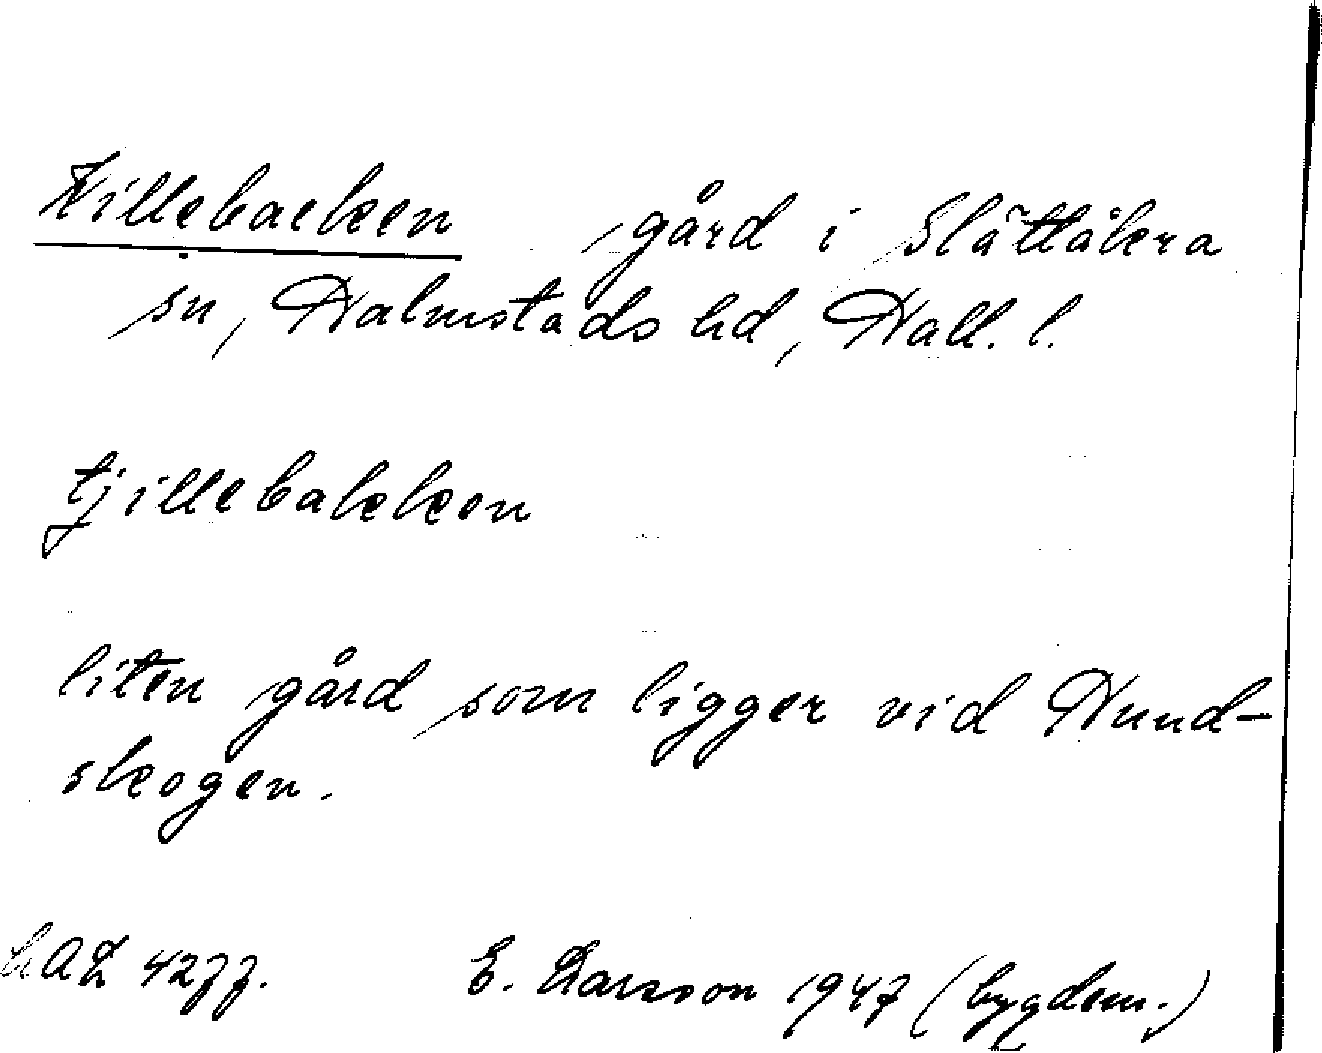 Killebacken , gård i Slättåkra
sn, Halmstads hd, Hall. l.
tjillebakken
liten gård som ligger vid Hund-
skogen.
E. Larsson 1947 (bygdem.)